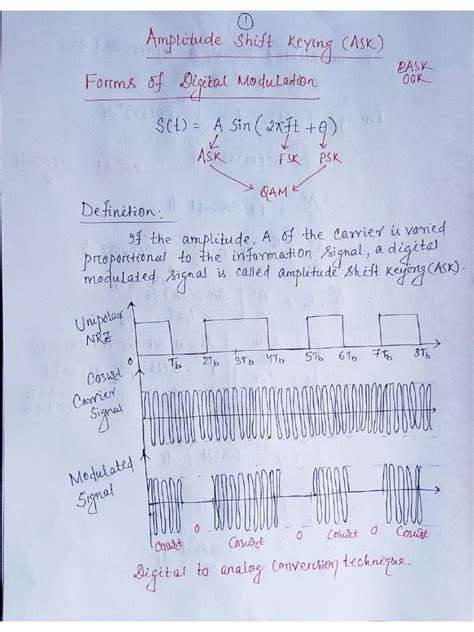 1
Amplitude Shift Keying (ASK)
BASK
OOK
Forms of Digital Modulation
S(t) = A Sin (2πft + θ)
ASK FSK PSK
QAM
Definition:
If the amplitude, A of the carrier is varied
proportional to the information signal, a digital
modulated signal is called amplitude shift keying (ASK).
Unipolar
NRZ
0 Tb 2Tb 3Tb 4Tb 5Tb 6Tb 7Tb 8Tb
Carrier
Signal
Modulated
Signal
0 0 0
Digital to analog conversion technique.